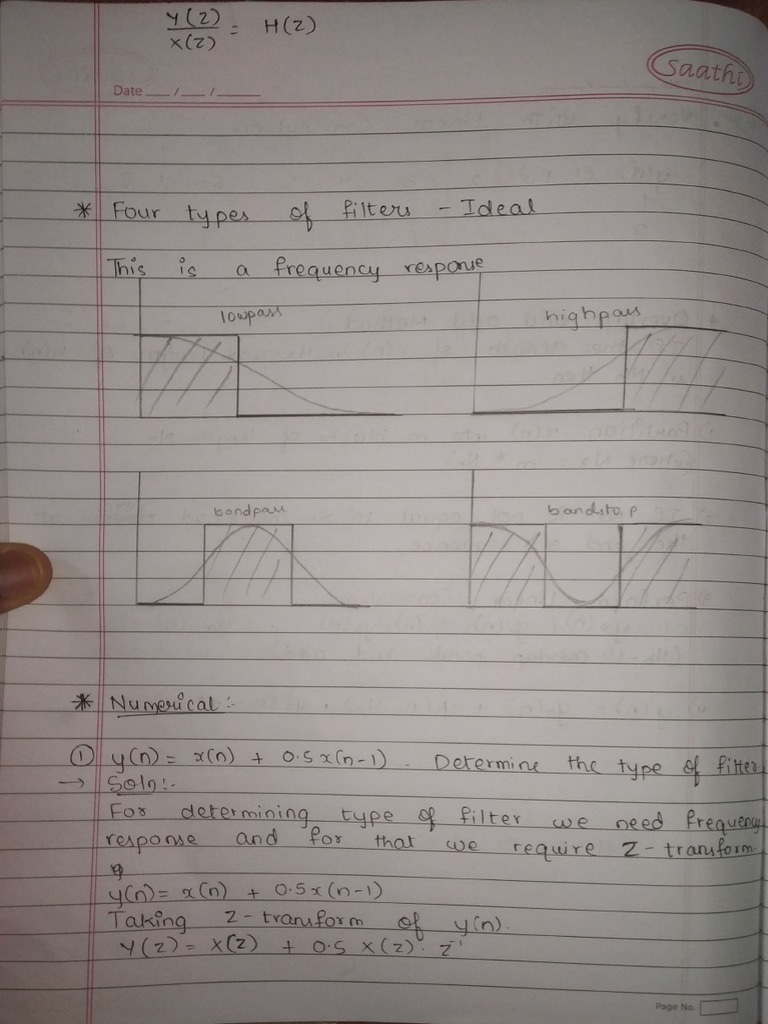 Y(Z)
X(Z) = H(Z)
Saathi
Date __ / __ / ____
* Four types of filters - Ideal
This is a frequency response
lowpass
highpass
bandpass
bandsto.p
* Numerical :-
① y(n) = x(n) + 0.5x(n-1). Determine the type of filter.
→ Soln:-
For determining type of filter we need frequency
response and for that we require Z-transform.
y(n) = x(n) + 0.5x(n-1)
Taking Z-transform of y(n).
Y(Z) = X(Z) + 0.5 X(Z). Z⁻¹
Page No.